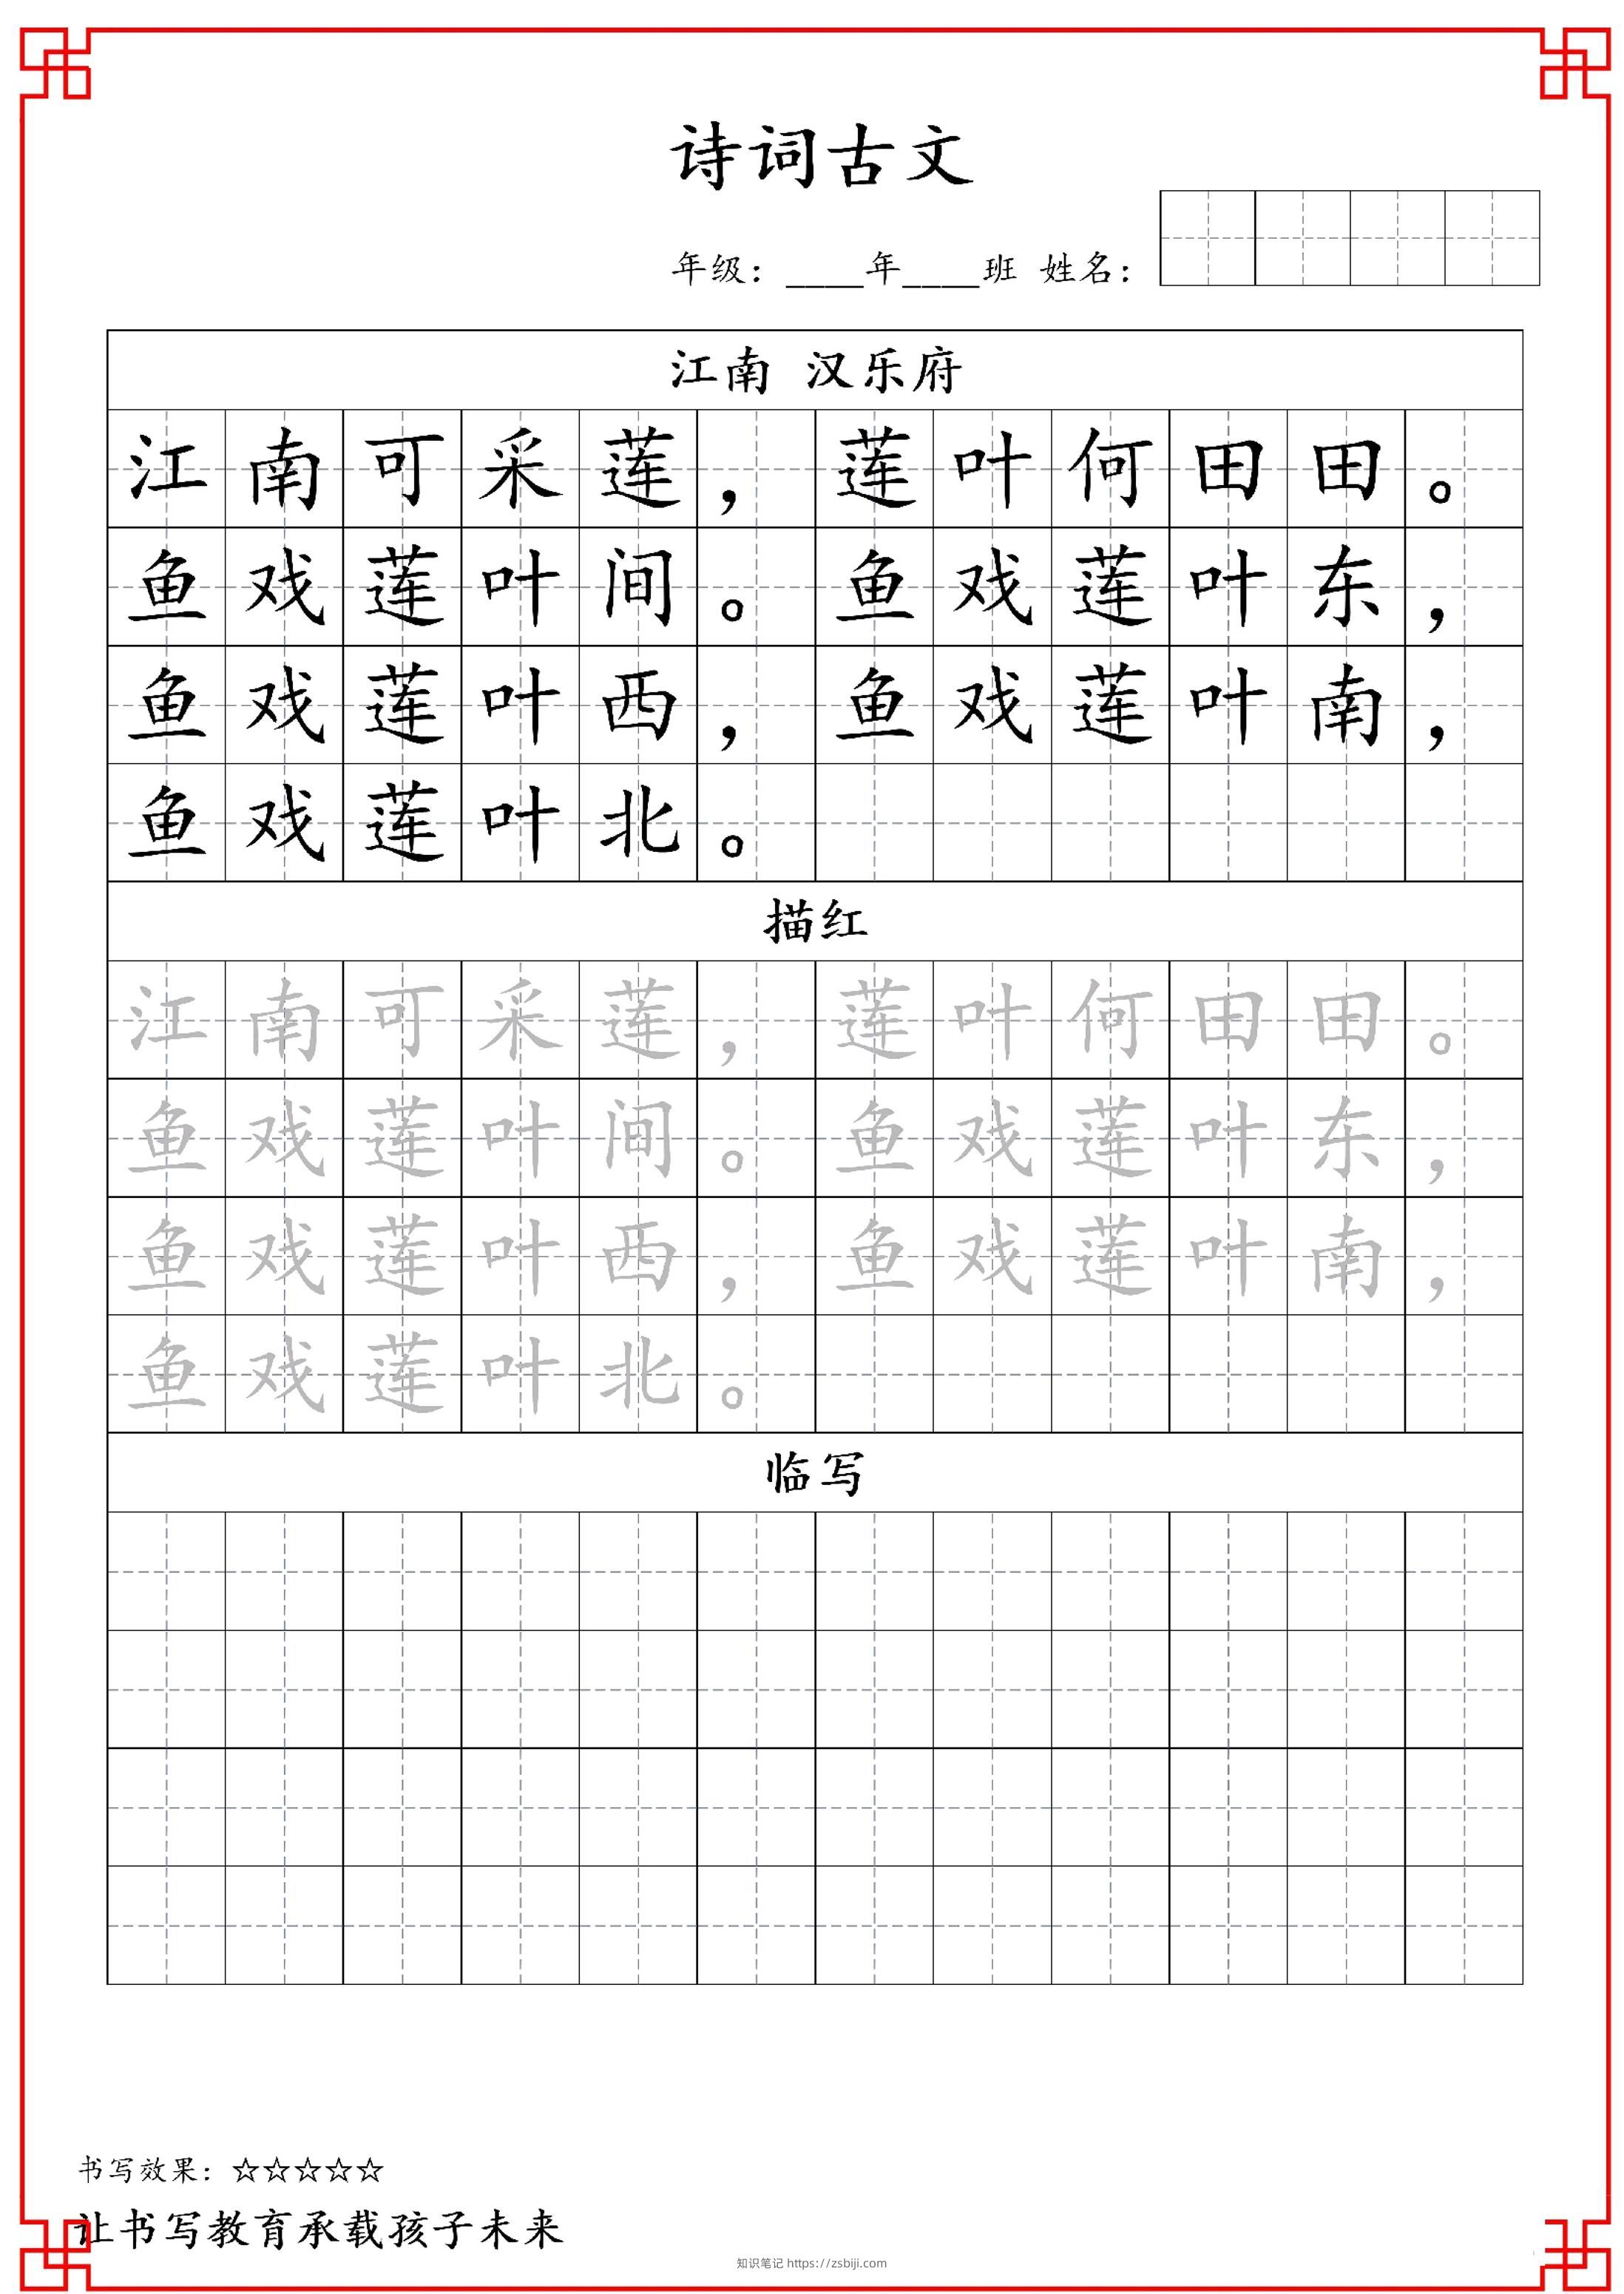 诗词古文
年级：____年____班 姓名：
江南 汉乐府
江南可采莲，莲叶何田田。
鱼戏莲叶间。鱼戏莲叶东，
鱼戏莲叶西，鱼戏莲叶南，
鱼戏莲叶北。
描红
江南可采莲，莲叶何田田。
鱼戏莲叶间。鱼戏莲叶东，
鱼戏莲叶西，鱼戏莲叶南，
鱼戏莲叶北。
临写
书写效果：☆☆☆☆☆
让书写教育承载孩子未来
知识笔记 https://zsbiji.com